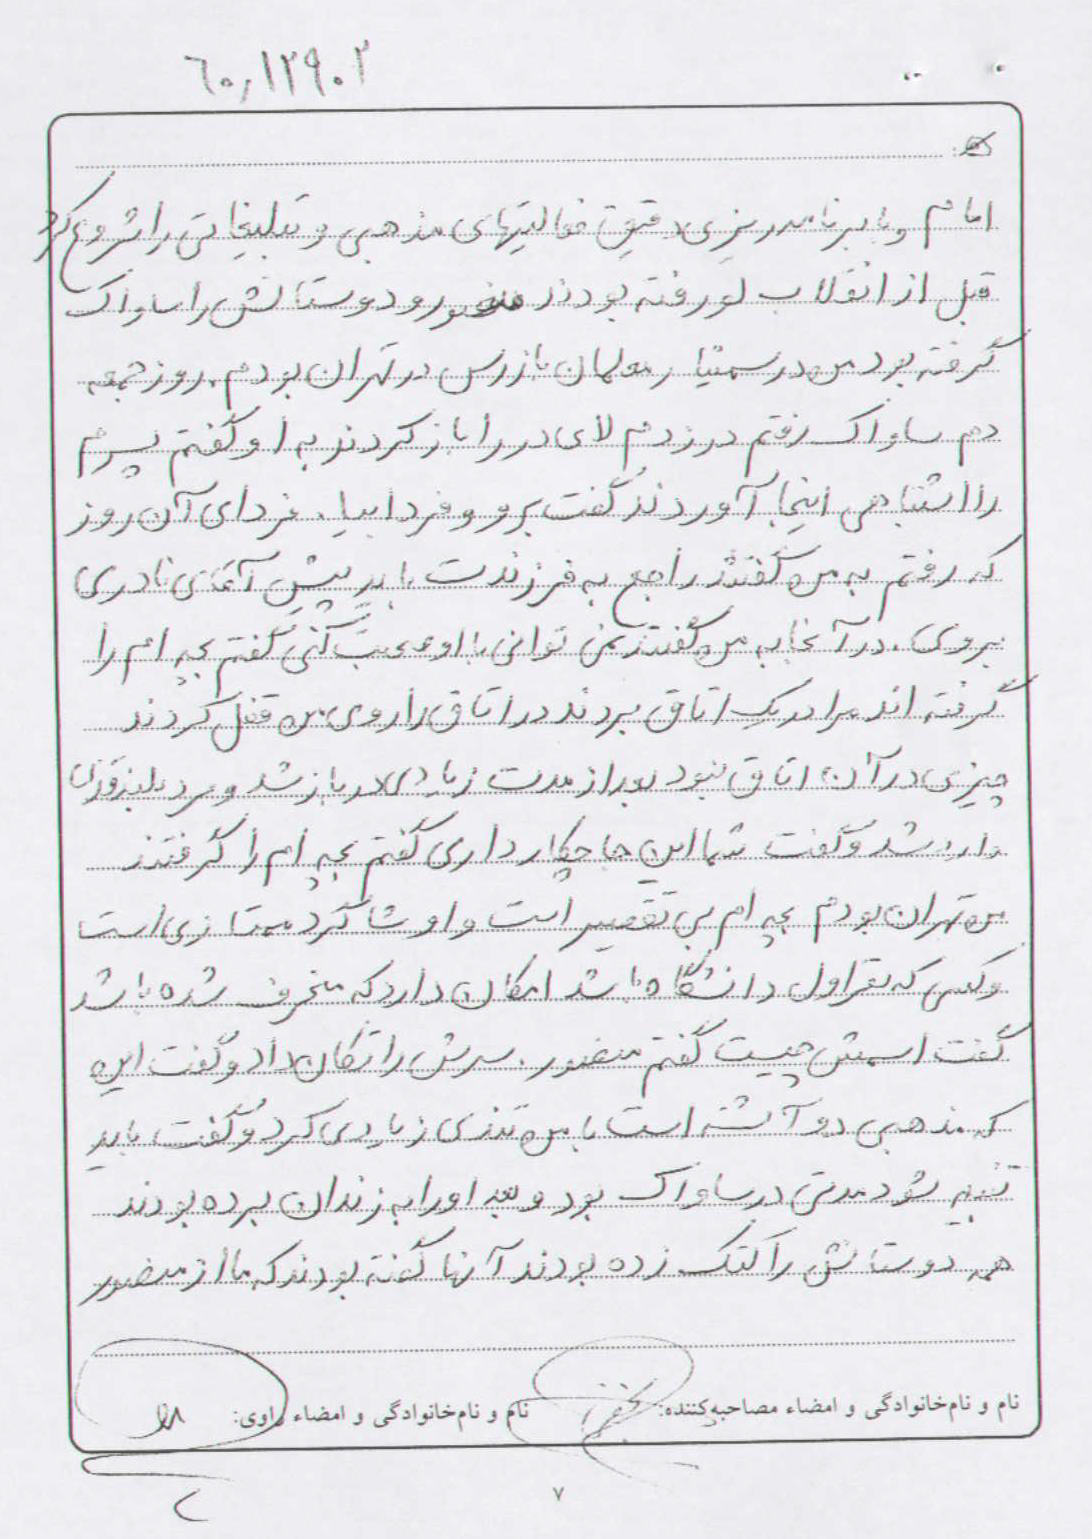 ۶۰,۱۲۹۰۲
امام و با برنامه ریزی دقیق فعالیتهای مذهبی و تبلیغاتی را شروع کرد
قبل از انقلاب لو رفته بودند منصور و دوستانش را ساواک
گرفته بود من در سمینار معلمان بازرس در تهران بودم. روز جمعه
دم ساواک رفتم در زدم لای در را باز کردند به او گفتم پسرم
را اشتباهی اینجا آوردند گفت برو و فردا بیا. فردای آن روز
که رفتم به من گفتند راجع به فرزندت باید پیش آقای نادری
بروی. در آنجا به من گفتند نمی توانی با او صحبت کنی گفتم بچه ام را
گرفته اند مرا در یک اتاق بردند در اتاق را روی من قفل کردند
چیزی در آن اتاق نبود بعد از مدت زیادی در باز شد و مرد بلند قدی
وارد شد و گفت شما این جا چکار داری گفتم بچه ام را گرفتند
من تهران بودم بچه ام بی تقصیر است و او شاگرد ممتازی است
و کسی که نفر اول دانشگاه باشد امکان دارد که منحرف شده باشد
گفت اسمش چیست گفتم منصور. سرش را تکان داد و گفت این
که مذهبی دو آتشه است با من تندی زیادی کرد و گفت باید
تنبیه شود مدتی در ساواک بود و بعد او را به زندان برده بودند
همه دوستانش را کتک زده بودند آنها گفته بودند که ما از منصور
نام و نام‌خانوادگی و امضاء مصاحبه‌کننده: نام و نام‌خانوادگی و امضاء راوی:
۷